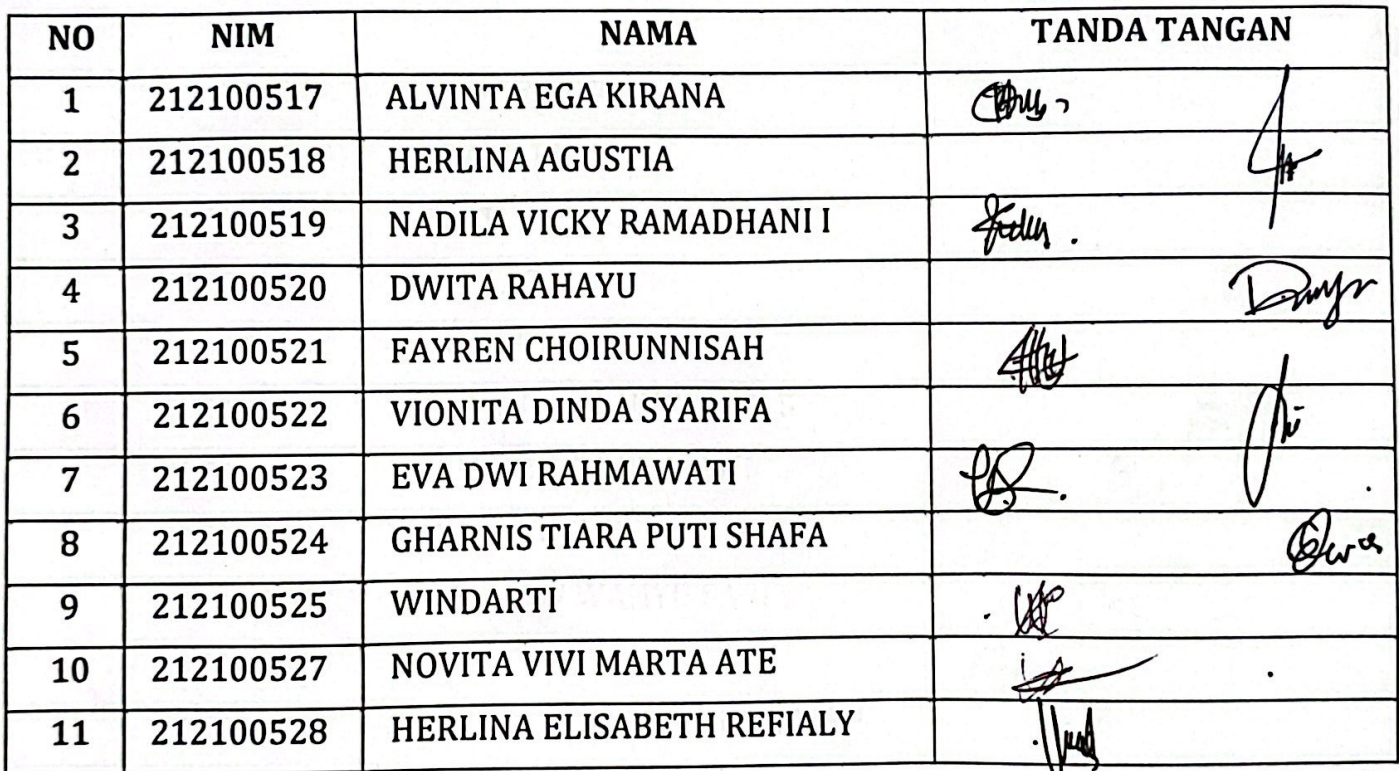 NO NIM NAMA TANDA TANGAN
1 212100517 ALVINTA EGA KIRANA
2 212100518 HERLINA AGUSTIA
3 212100519 NADILA VICKY RAMADHANI I
4 212100520 DWITA RAHAYU
5 212100521 FAYREN CHOIRUNNISAH
6 212100522 VIONITA DINDA SYARIFA
7 212100523 EVA DWI RAHMAWATI
8 212100524 GHARNIS TIARA PUTI SHAFA
9 212100525 WINDARTI
10 212100527 NOVITA VIVI MARTA ATE
11 212100528 HERLINA ELISABETH REFIALY